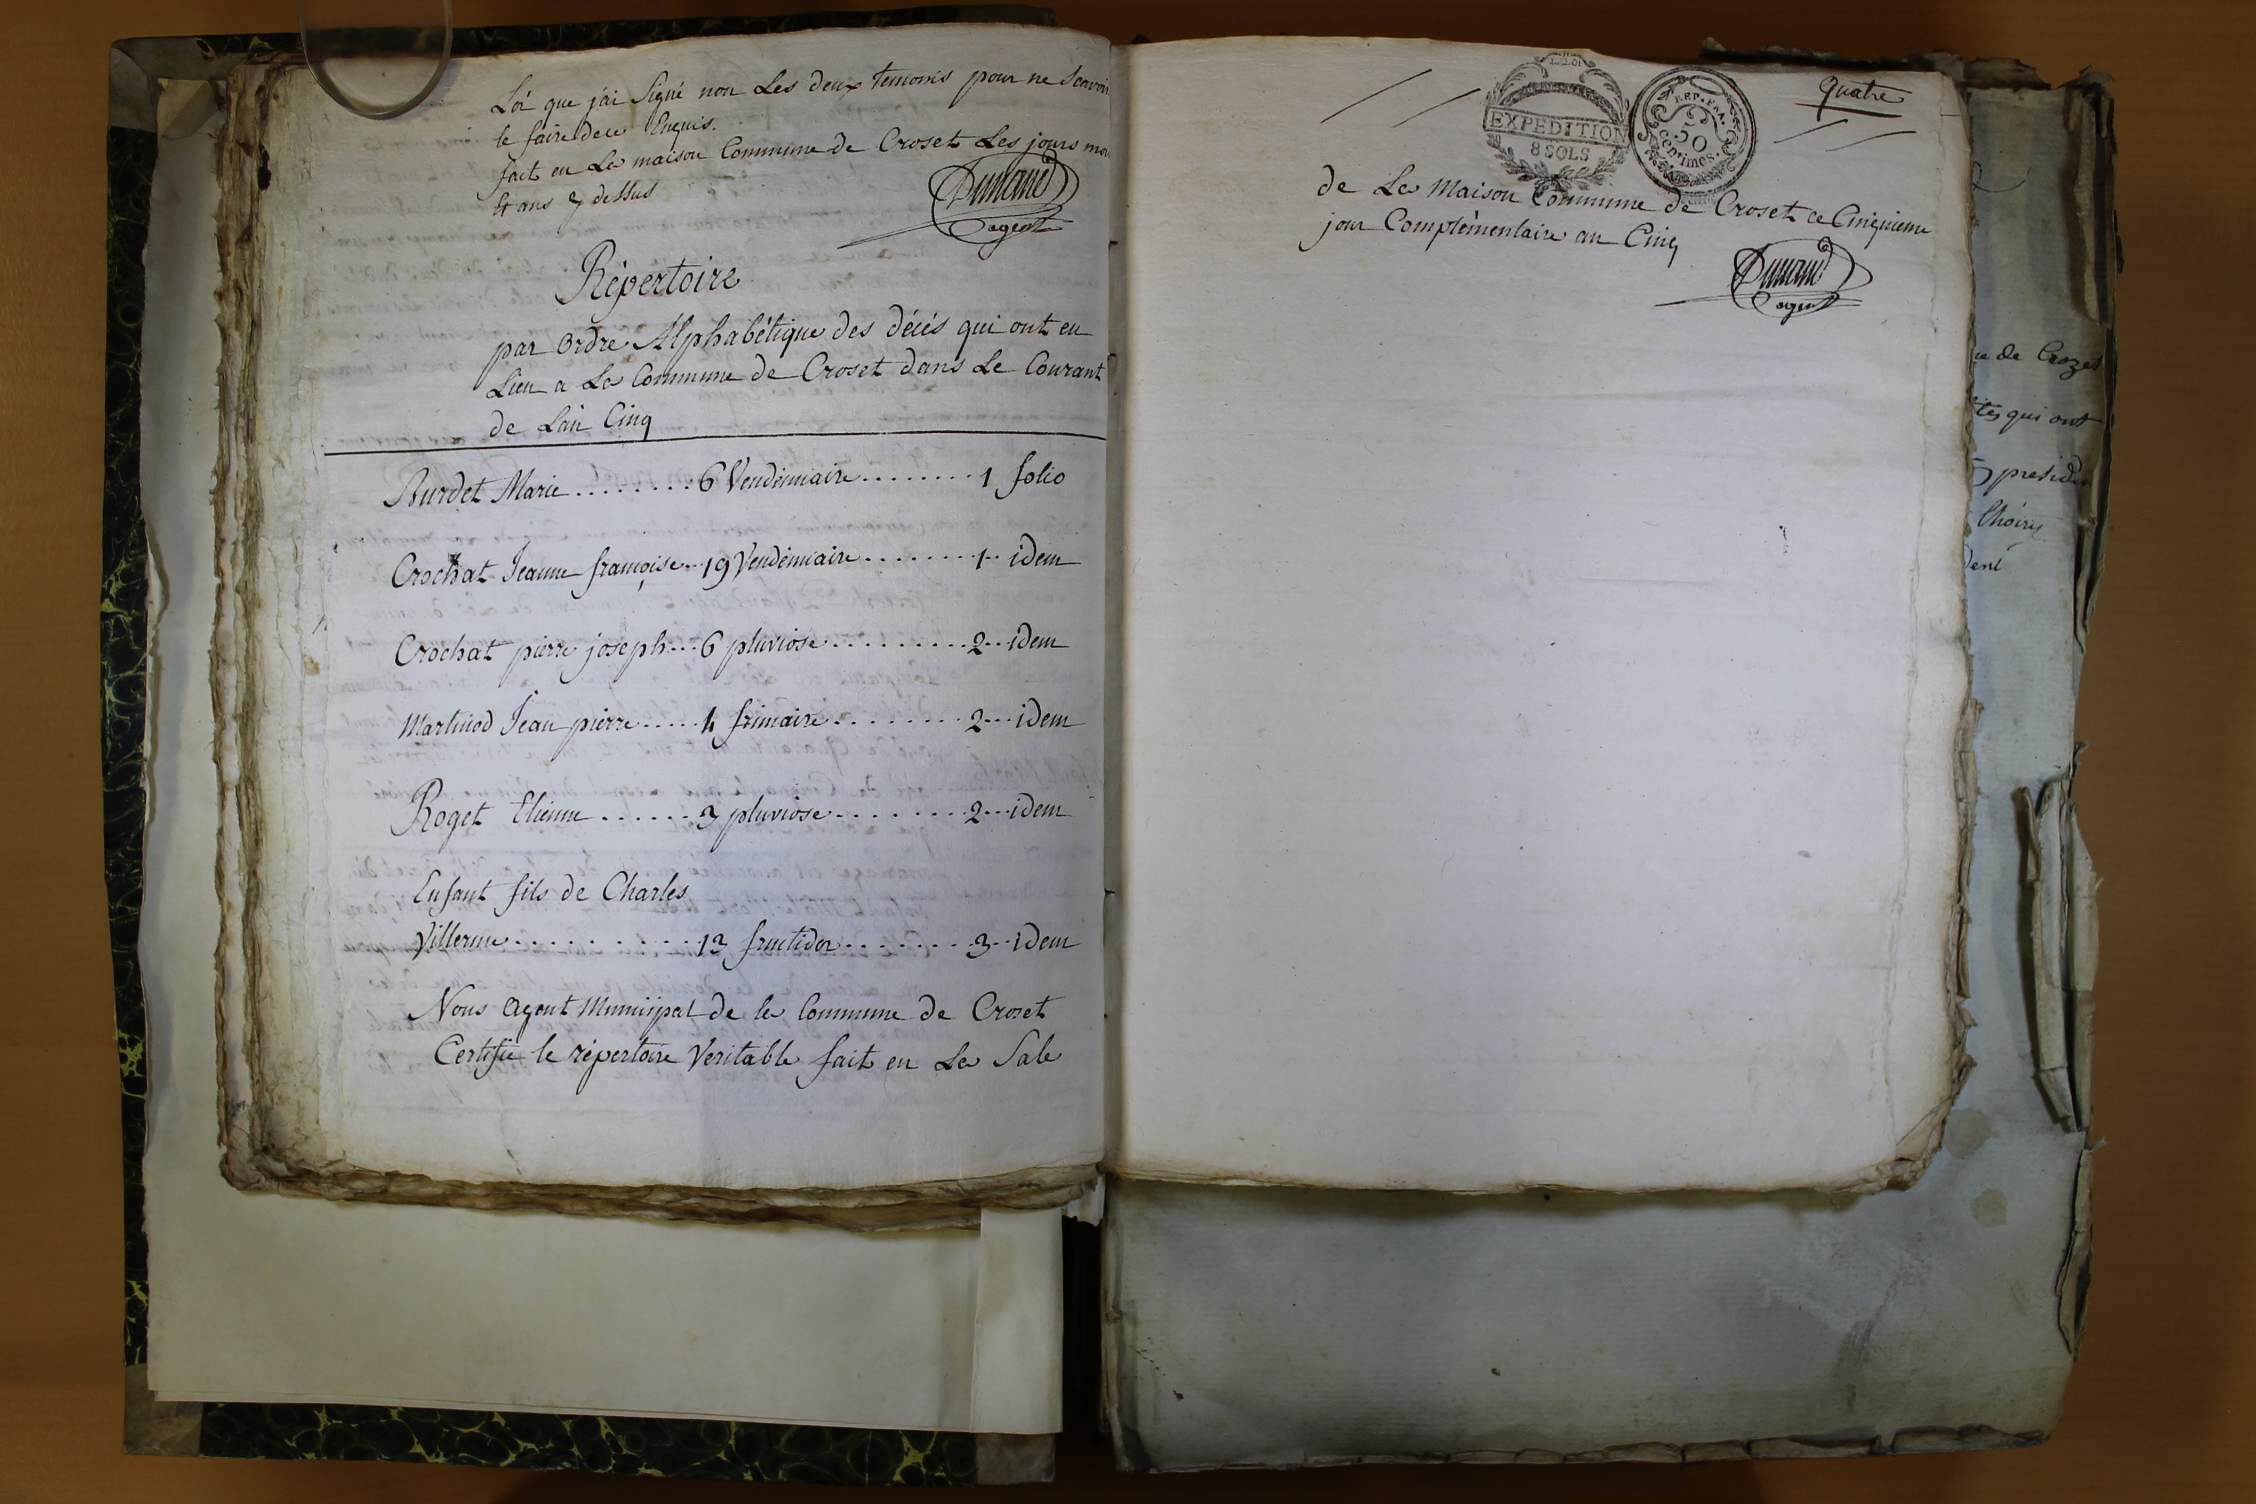 Loi que j'ai Signé non Les deux temoins pour ne Scavoir
le faire de ce Enquis.
fait en La maison Commune de Croset Les jours mois
et ans y dessus
Dumand
agent
Répertoire
par Ordre Alphabétique des décés qui ont eu
Lieu a La Commune de Croset dans Le Courant
de L'an Cinq
Burdet Marie ........ 6 Vendémiaire ........ 1 folio
Crochat Jeanne françoise .. 19 Vendémiaire ........ 1 .. idem
Crochat pierre joseph ... 6 pluviose ......... 2 .. idem
Martinod Jean pierre ..... 4 frimaire ........ 2 ... idem
Roget Etienne ...... 3 pluviose ........ 2 ... idem
Enfant fils de Charles
Villerme .......... 12 fructidor ....... 3 .. idem
Nous Agent Municipal de la Commune de Croset
Certifie le répertoire Veritable fait en La Sale
Quatre
LA LOI
EXPEDITION
8 SOLS
REP. FRA.
50
Centimes.
de La Maison Commune de Croset ce Cinquieme
jour Complémentaire an Cinq
Dumand
agent
de Crozet
qui ont
presid